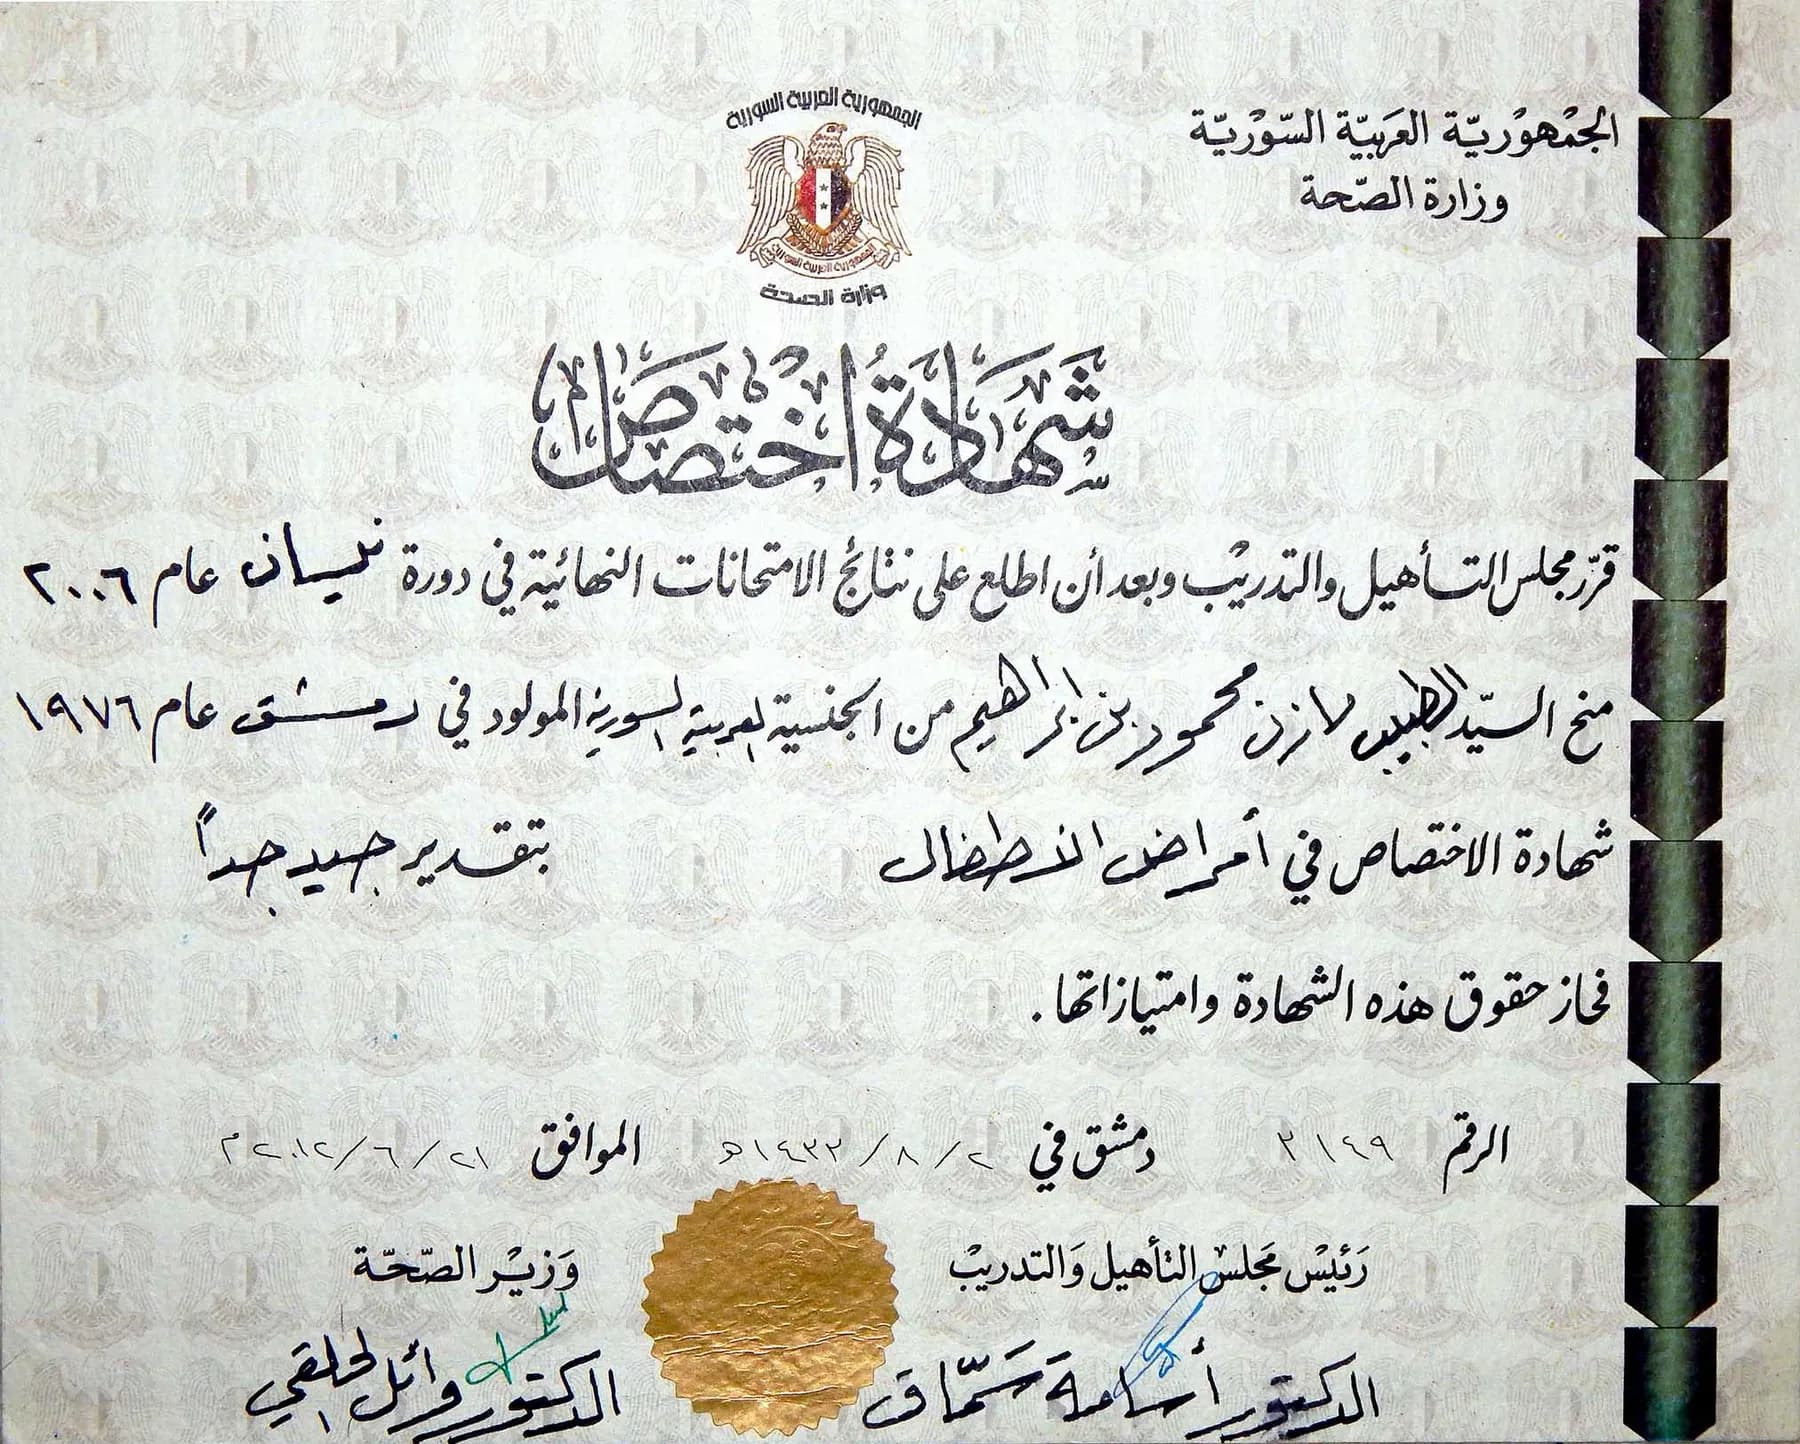 الجمهورية العربية السورية
الجمْهوْريّة العَربيّة السّوْريّة
وزارة الصّحة
الجمهورية العربية السورية
وزارة الصحة
شَهَادَةُ اخْتِصَاص
قرّر مجلس التأهيل والتدريْب وبعد أن اطلع على نتائج الامتحانات النهائية في دورة نيسان عام ٢٠٠٦
منح السيّد الطبيب مازن محمود بن ابراهيم من الجنسية العربية السورية المولود في دمشق عام ١٩٧٦
شهادة الاختصاص في أمراض الأطفال بتقدير جيد جداً
فحاز حقوق هذه الشهادة وامتيازاتها.
الرقم ٣١٤٩ دمشق في ٢ / ٨ / ١٤٣٣هـ الموافق ٢١ / ٦ / ٢٠١٢م
رَئيْس مَجلس التأهيل وَالتدريبْ وَزيْر الصّحّة
الدكتور أسامة سَمّاق الدكتور وائل الحلقي